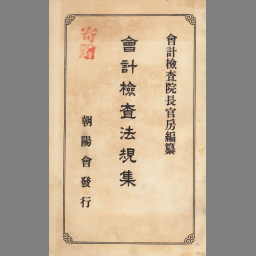 會計檢査院長官房編纂
會計檢査法規集
朝陽會發行